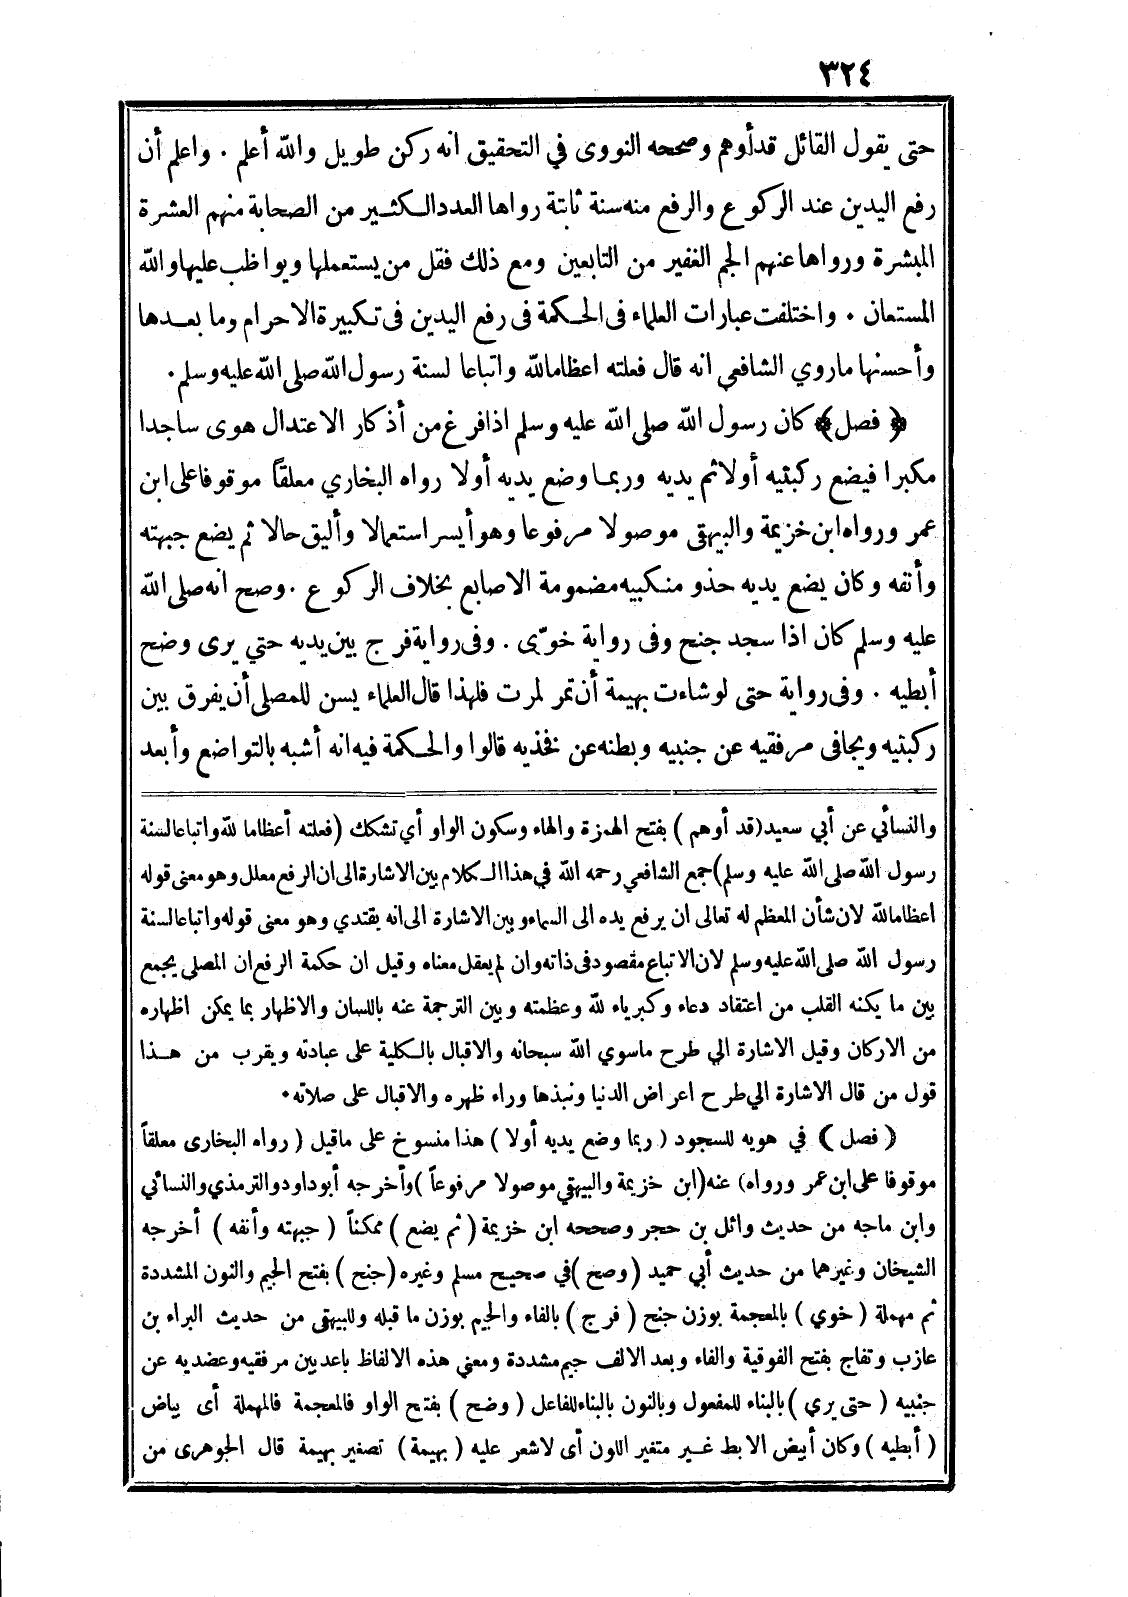 ٣٢٤
حتى يقول القائل قدأوهم وصححه النووى في التحقيق انه ركن طويل والله أعلم . واعلم أن
رفع اليدين عند الركوع والرفع منه سنة ثابتة رواها العدد الكثير من الصحابة منهم العشرة
المبشرة ورواها عنهم الجم الغفير من التابعين ومع ذلك فقل من يستعملها ويواظب عليها والله
المستعان . واختلفت عبارات العلماء فى الحكمة فى رفع اليدين فى تكبيرة الاحرام وما بعدها
وأحسنها ماروي الشافعي انه قال فعلته اعظاما لله واتباعا لسنة رسول الله صلى الله عليه وسلم .
﴿ فصل ﴾ كان رسول الله صلى الله عليه وسلم اذا فرغ من أذكار الاعتدال هوى ساجدا
مكبرا فيضع ركبتيه أولا ثم يديه وربما وضع يديه أولا رواه البخاري معلقاً موقوفا على ابن
عمر ورواه ابن خزيمة والبيهقى موصولا مرفوعا وهو أيسر استعمالا وأليق حالا ثم يضع جبهته
وأنفه وكان يضع يديه حذو منكبيه مضمومة الاصابع بخلاف الركوع . وصح انه صلى الله
عليه وسلم كان اذا سجد جنح وفى رواية خوّى . وفى رواية فرج بين يديه حتي يرى وضح
أبطيه . وفى رواية حتى لو شاءت بهيمة أن تمر لمرت فلهذا قال العلماء يسن للمصلى أن يفرق بين
ركبتيه ويجافى مرفقيه عن جنبيه وبطنه عن فخذيه قالوا والحكمة فيه انه أشبه بالتواضع وأبعد
والنسائي عن أبي سعيد (قد أوهم ) بفتح الهمزة والهاء وسكون الواو أي تشكك (فعلته أعظاما لله واتباعا لسنة
رسول الله صلى الله عليه وسلم) جمع الشافعي رحمه الله في هذا الكلام بين الاشارة الى ان الرفع معلل وهو معنى قوله
اعظاما لله لان شأن المعظم له تعالى ان يرفع يده الى السماء وبين الاشارة الى انه يقتدي وهو معنى قوله واتباعا لسنة
رسول الله صلى الله عليه وسلم لان الاتباع مقصود فى ذاته وان لم يعقل معناه وقيل ان حكمة الرفع ان المصلى يجمع
بين ما يكنه القلب من اعتقاد دعاء وكبرياء لله وعظمته وبين الترجمة عنه باللسان والاظهار بما يمكن اظهاره
من الاركان وقيل الاشارة الي طرح ماسوي الله سبحانه والاقبال بالكلية على عبادته ويقرب من هذا
قول من قال الاشارة الي طرح اعراض الدنيا ونبذها وراء ظهره والاقبال على صلاته .
( فصل ) في هويه للسجود ( ربما وضع يديه أولا ) هذا منسوخ على ماقيل ( رواه البخارى معلقاً
موقوفا على ابن عمر ورواه) عنه (ابن خزيمة والبيهقي موصولا مرفوعاً ) وأخرجه أبو داود والترمذي والنسائي
وابن ماجه من حديث وائل بن حجر وصححه ابن خزيمة ( ثم يضع ) ممكناً ( جبهته وأنفه ) أخرجه
الشيخان وغيرهما من حديث أبي حميد (وصح ) في صحيح مسلم وغيره (جنح ) بفتح الجيم والنون المشددة
ثم مهملة ( خوي ) بالمعجمة بوزن جنح ( فرج ) بالفاء والجيم بوزن ما قبله وللبيهقى من حديث البراء بن
عازب وتفاج بفتح الفوقية والفاء وبعد الالف جيم مشددة ومعني هذه الالفاظ باعد بين مرفقيه وعضديه عن
جنبيه ( حتى يري ) بالبناء للمفعول وبالنون بالبناء للفاعل ( وضح ) بفتح الواو فالمعجمة فالمهملة أى بياض
( أبطيه ) وكان أبيض الابط غير متغير اللون أى لا شعر عليه ( بهيمة ) تصغير بهيمة قال الجوهرى من